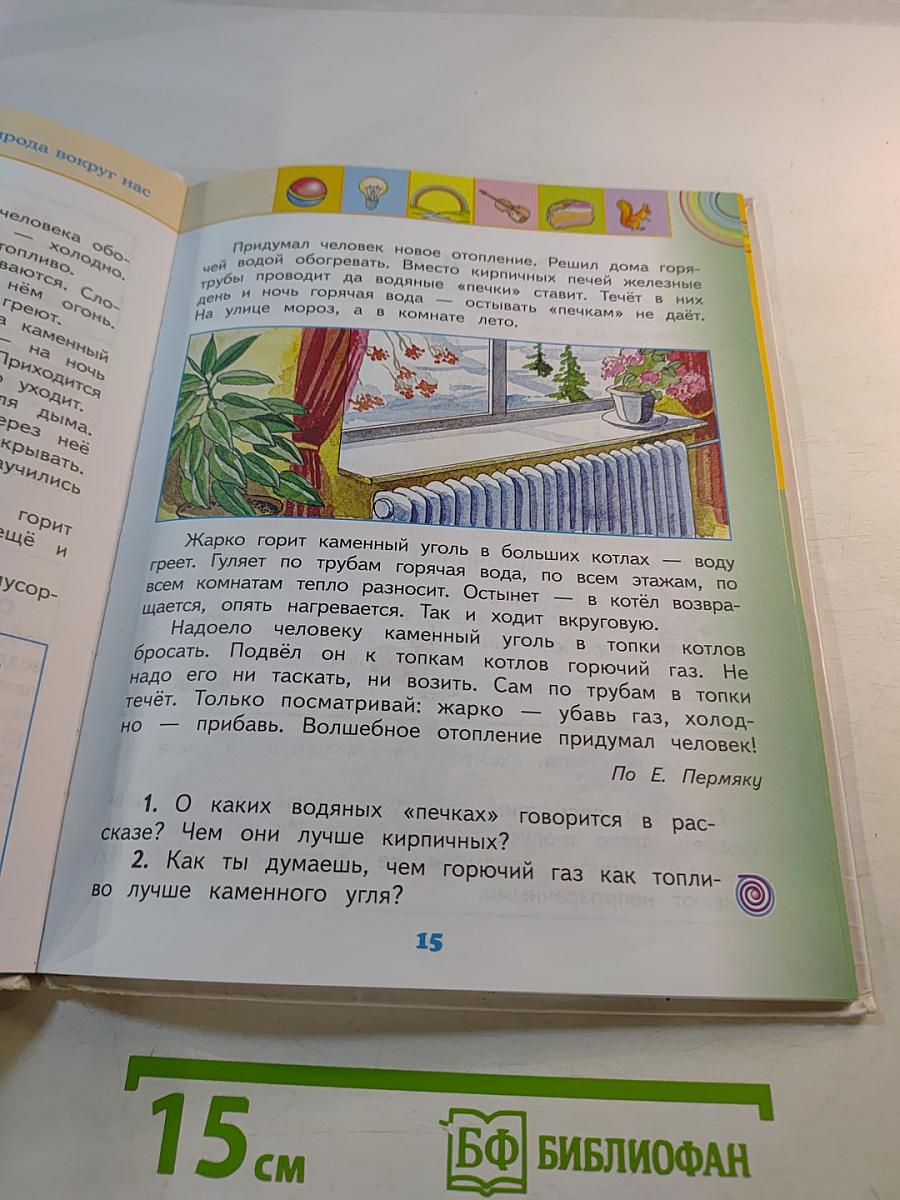 природа вокруг нас
человека обо-
— холодно.
топливо.
ваются. Сло-
нём огонь.
греют.
а каменный
— на ночь
Приходится
уходит.
ля дыма.
через неё
крывать.
аучились
горит
ещё и
мусор-
Придумал человек новое отопление. Решил дома горя-
чей водой обогревать. Вместо кирпичных печей железные
трубы проводит да водяные «печки» ставит. Течёт в них
день и ночь горячая вода — остывать «печкам» не даёт.
На улице мороз, а в комнате лето.
Жарко горит каменный уголь в больших котлах — воду
греет. Гуляет по трубам горячая вода, по всем этажам, по
всем комнатам тепло разносит. Остынет — в котёл возвра-
щается, опять нагревается. Так и ходит вкруговую.
Надоело человеку каменный уголь в топки котлов
бросать. Подвёл он к топкам котлов горючий газ. Не
надо его ни таскать, ни возить. Сам по трубам в топки
течёт. Только посматривай: жарко — убавь газ, холод-
но — прибавь. Волшебное отопление придумал человек!
По Е. Пермяку
1. О каких водяных «печках» говорится в рас-
сказе? Чем они лучше кирпичных?
2. Как ты думаешь, чем горючий газ как топли-
во лучше каменного угля?
15
15 см
БФ БИБЛИОФАН